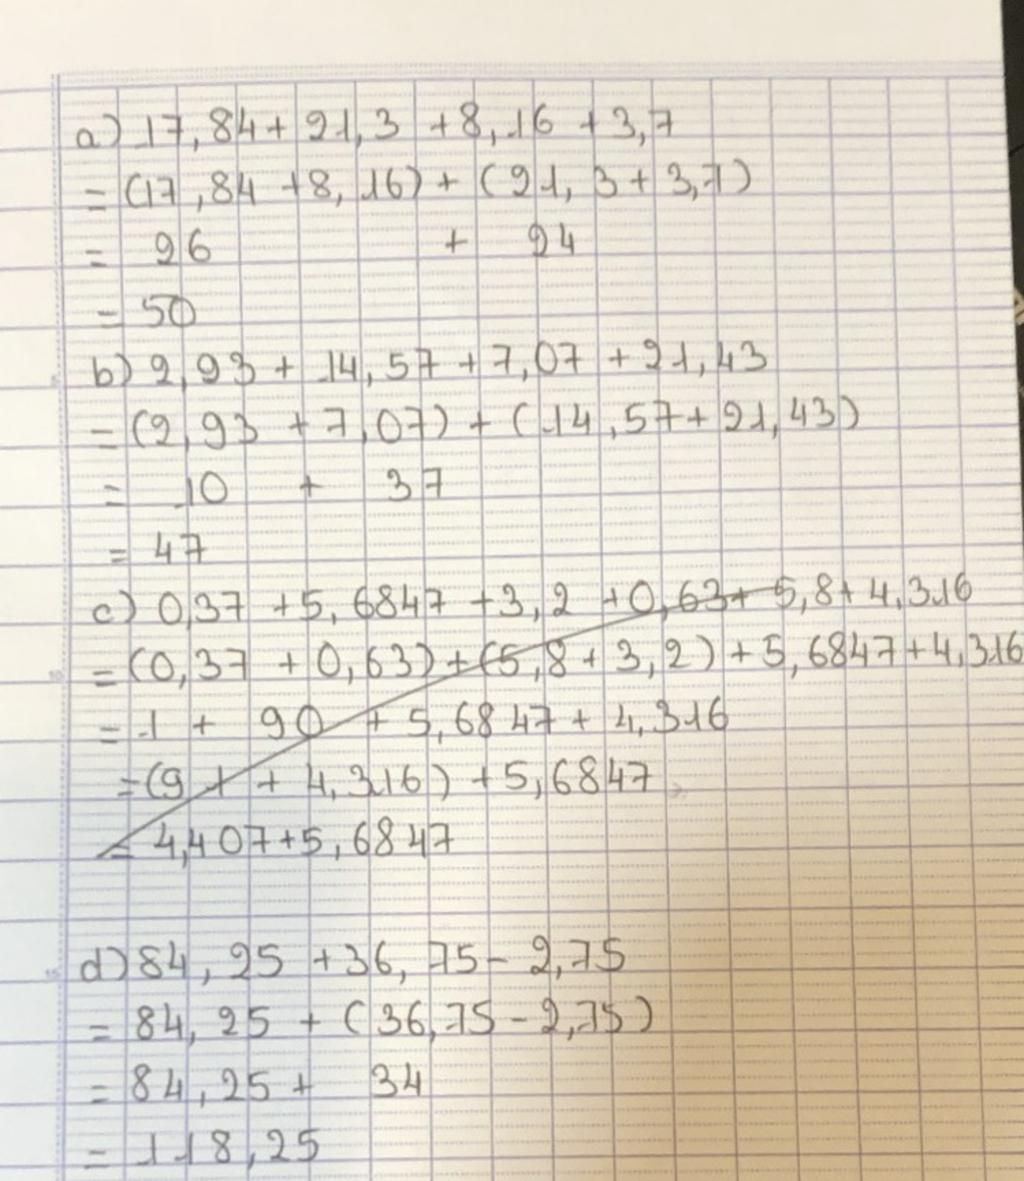 a) 17,84 + 21,3 + 8,16 + 3,7
= (17,84 + 8,16) + (21,3 + 3,7)
= 26 + 24
= 50
b) 2,93 + 14,57 + 7,07 + 21,43
= (2,93 + 7,07) + (14,57 + 21,43)
= 10 + 37
= 47
c) 0,37 + 5,6847 + 3,2 + 0,63 + 5,8 + 4,316
= (0,37 + 0,63) + (5,8 + 3,2) + 5,6847 + 4,316
= 1 + 90 + 5,6847 + 4,316
= (91 + 4,316) + 5,6847
= 4,407 + 5,6847
d) 84,25 + 36,75 - 2,75
= 84,25 + (36,75 - 2,75)
= 84,25 + 34
= 118,25